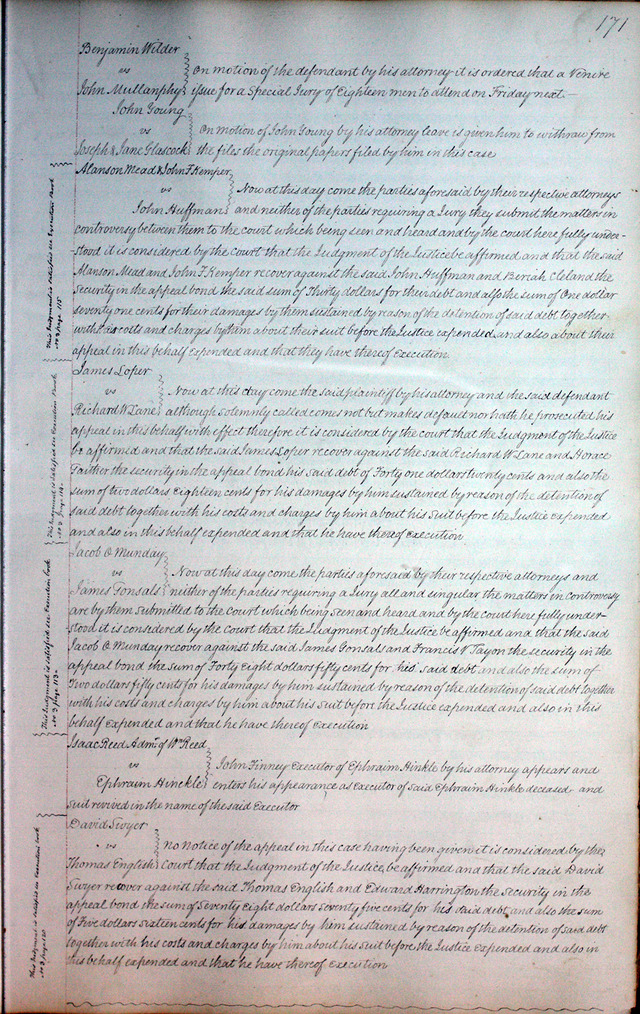 171
Benjamin Wilder
vs
On motion of the defendant by his attorney it is ordered that a Venire
John Mullanphy issue for a Special Jury of Eighteen men to attend on Friday next.—
John Young
vs
On motion of John Young by his attorney leave is given him to withraw from
Joseph & Jane Glascock the files the original papers filed by him in this case
Alanson Mead & John F Kemper
vs
Now at this day come the parties aforesaid by their respective attorneys
John Huffman and neither of the parties requiring a Jury they submit the matters in
controversy between them to the court which being seen and heard and by the court here fully under-
stood it is considered by the Court that the Judgment of the Justice be affirmed and that the said
Alanson Mead and John F Kemper recover against the said John Huffman and Beriah Cleland the
Security in the appeal bond the said sum of Thirty dollars for their debt and also the sum of One dollar
seventy one cents for their damages by them sustained by reason of the detention of said debt together
with costs and charges by them about their suit before the Justice expended and also about their
appeal in this behalf expended and that they have thereof Execution.
This Judgment is satisfied see Execution Book
No 2 page 115
James Loper
vs
Now at this day come the said plaintiff by his attorney and the said defendant
Richard W Lane although solemnly called comes not but makes default nor hath he prosecuted his
appeal in this behalf with effect therefore it is considered by the court that the Judgment of the Justice
be affirmed and that the said James Loper recover against the said Richard W Lane and Horace
the security in the appeal bond his said debt of Forty one dollars twenty cents and also the
sum of two dollars Eighteen cents for his damages by him sustained by reason of the detention of
said debt together with his costs and charges by him about his Suit before the Justice expended
and also in this behalf expended and that he have thereof Execution
This Judgment is satisfied see Execution Book
No 2 page 114.
Jacob O Munday
vs
Now at this day come the parties aforesaid by their respective attorneys and
James Gonsals neither of the parties requiring a Jury all and singular the matters in controversy
are by them submitted to the Court which being seen and heard and by the court here fully under-
stood it is considered by the Court that the Judgment of the Justice be affirmed and that the said
Jacob O Munday recover against the said James Gonsals and Francis V Tayon the security in the
appeal bond the sum of Forty Eight dollars fifty cents for his said debt and also the sum of
Two dollars fifty cents for his damages by him sustained by reason of the detention of said debt together
with his costs and charges by him about his Suit before the Justice expended and also in this
behalf Expended and that he have thereof Execution
This Judgment is satisfied see Execution book
No 2 page 113.
Isaac Reed Admr. of Wm Reed
vs
John Finney Executor of Ephraim Hinkle by his attorney appears and
Ephraim Hinckle enters his appearance as Executor of said Ephraim Hinkle deceased and
Suit revived in the name of the said Executor
David Swyer
vs
No Notice of the appeal in this case having been given it is considered by the
Thomas English Court that the Judgment of the Justice, be affirmed and that the said David
Swyer recover against the said Thomas English and Edward Harrington the Security in the
appeal bond the sum of Seventy Eight dollars seventy five cents for his said debt and also the sum
of Five dollars sixteen cents for his damages by him sustained by reason of the detention of said debt
together with his costs and charges by him about his Suit before the Justice Expended and also in
this behalf expended and that he have thereof Execution
This Judgment is satisfied see Execution book
No 2 page